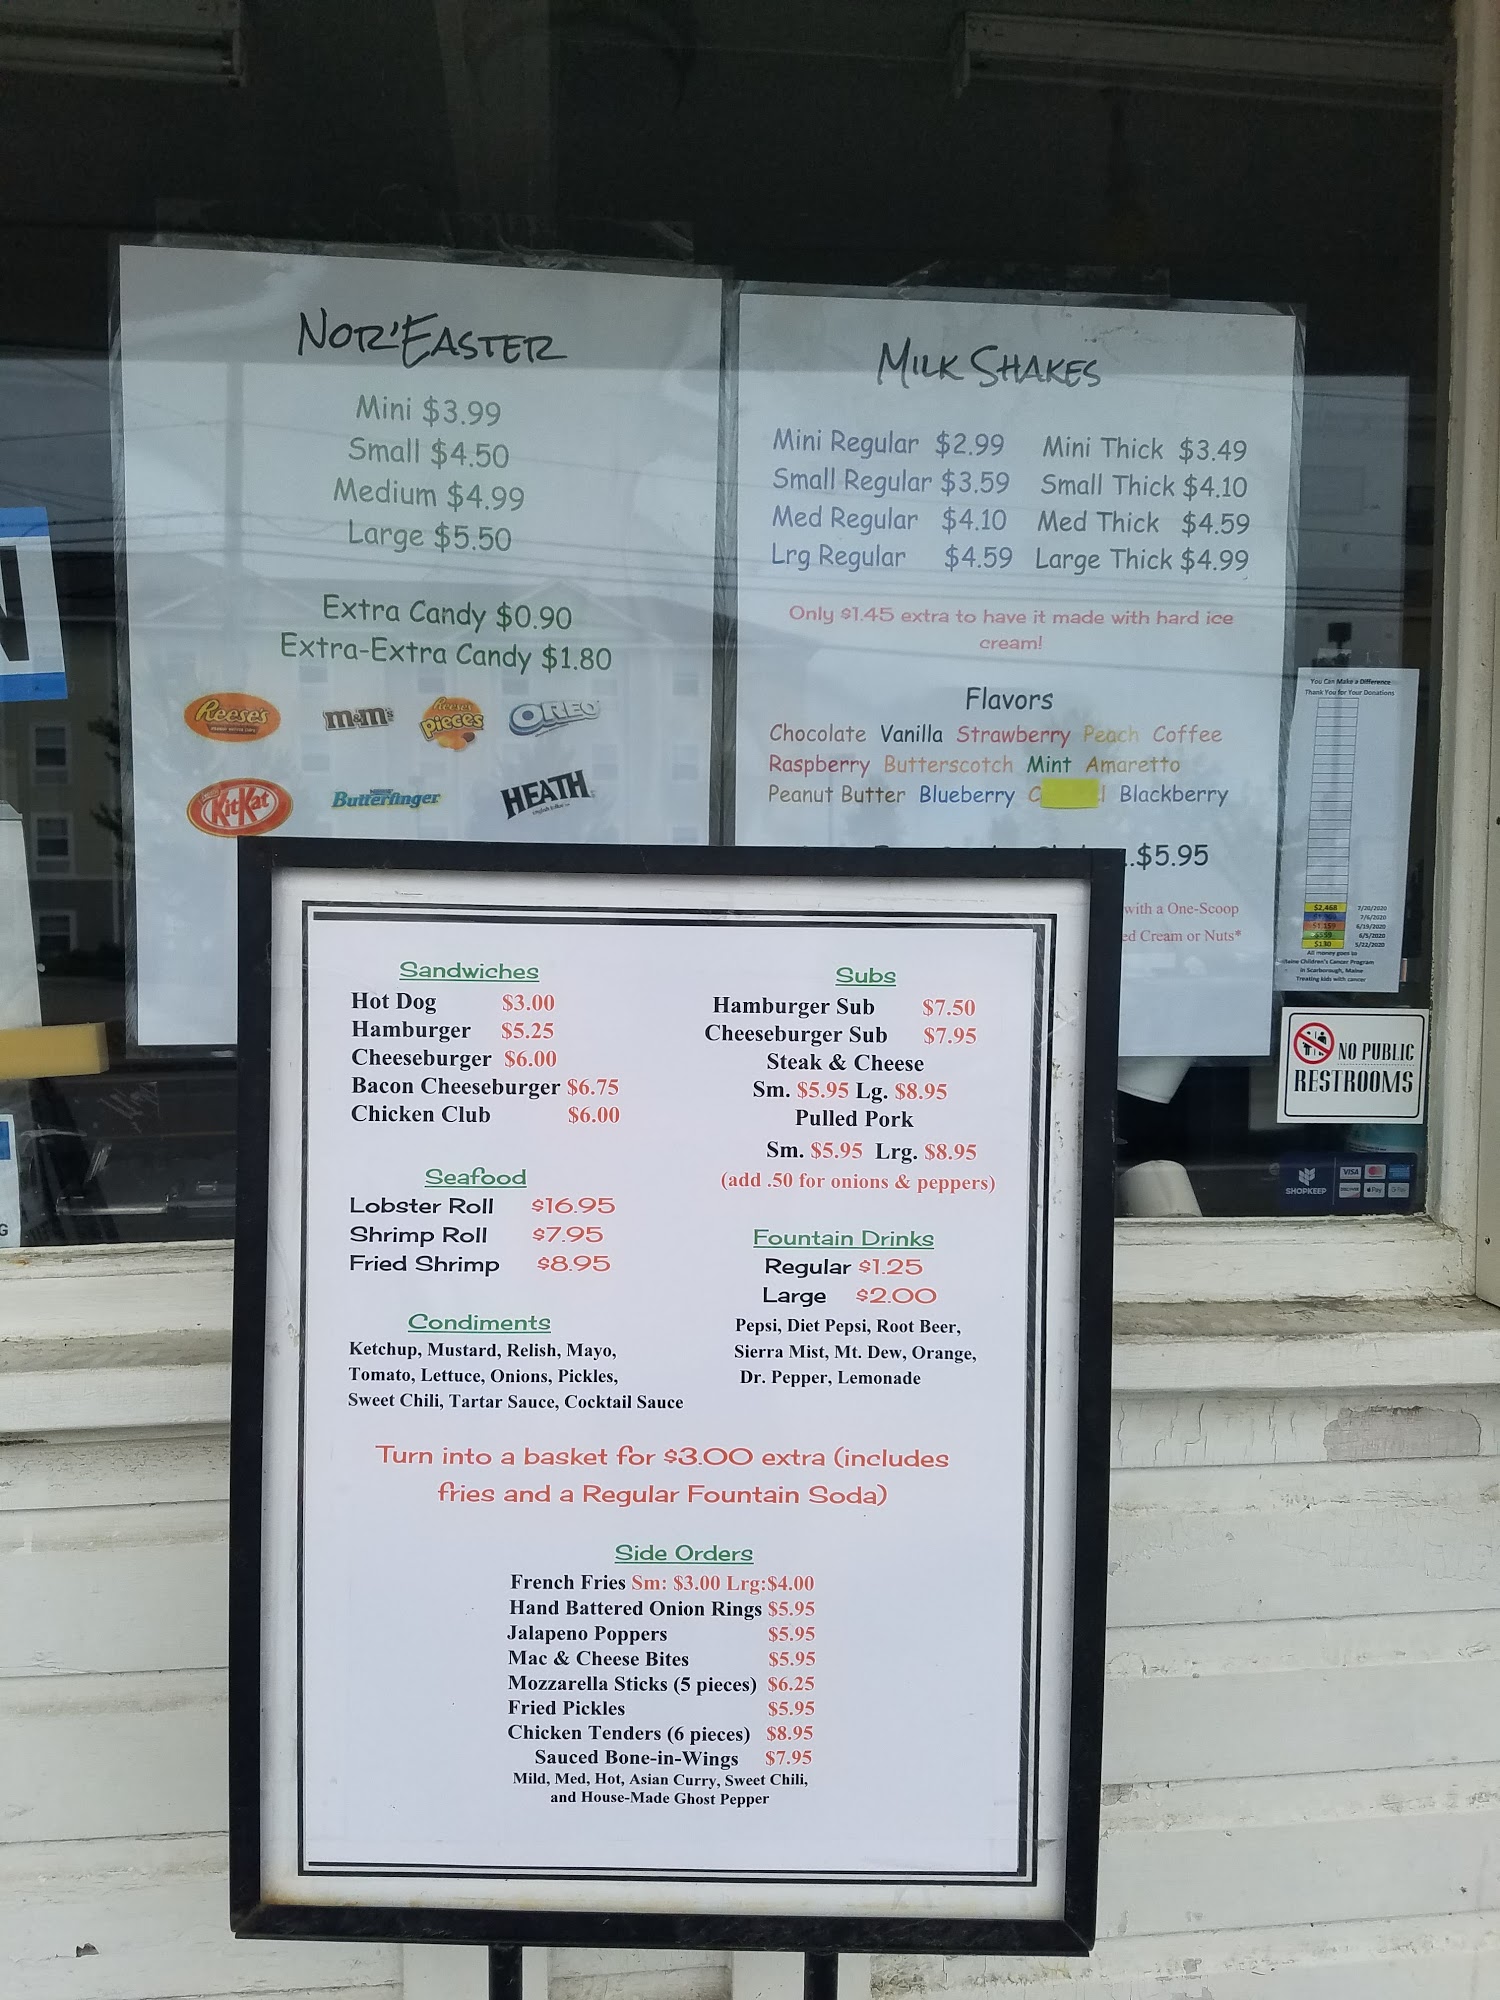 NOR'EASTER
Mini $3.99
Small $4.50
Medium $4.99
Large $5.50
Extra Candy $0.90
Extra-Extra Candy $1.80
Reese's
m&m's
Reese's Pieces
OREO
KitKat
Butterfinger
HEATH
MILK SHAKES
Mini Regular $2.99 Mini Thick $3.49
Small Regular $3.59 Small Thick $4.10
Med Regular $4.10 Med Thick $4.59
Lrg Regular $4.59 Large Thick $4.99
Only $1.45 extra to have it made with hard ice
cream!
Flavors
Chocolate Vanilla Strawberry Peach Coffee
Raspberry Butterscotch Mint Amaretto
Peanut Butter Blueberry Blackberry
$5.95
with a One-Scoop
Cream or Nuts*
You Can Make a Difference
Thank You for Your Donations
$2,468 7/20/2020
7/6/2020
$1,159 6/19/2020
$559 6/5/2020
$130 5/22/2020
All money goes to
Maine Children's Cancer Program
in Scarborough, Maine
Treating kids with cancer
NO PUBLIC
RESTROOMS
SHOPKEEP
VISA
DISCOVER
Pay
G Pay
Sandwiches
Hot Dog $3.00
Hamburger $5.25
Cheeseburger $6.00
Bacon Cheeseburger $6.75
Chicken Club $6.00
Seafood
Lobster Roll $16.95
Shrimp Roll $7.95
Fried Shrimp $8.95
Condiments
Ketchup, Mustard, Relish, Mayo,
Tomato, Lettuce, Onions, Pickles,
Sweet Chili, Tartar Sauce, Cocktail Sauce
Subs
Hamburger Sub $7.50
Cheeseburger Sub $7.95
Steak & Cheese
Sm. $5.95 Lg. $8.95
Pulled Pork
Sm. $5.95 Lrg. $8.95
(add .50 for onions & peppers)
Fountain Drinks
Regular $1.25
Large $2.00
Pepsi, Diet Pepsi, Root Beer,
Sierra Mist, Mt. Dew, Orange,
Dr. Pepper, Lemonade
Turn into a basket for $3.00 extra (includes
fries and a Regular Fountain Soda)
Side Orders
French Fries Sm: $3.00 Lrg:$4.00
Hand Battered Onion Rings $5.95
Jalapeno Poppers $5.95
Mac & Cheese Bites $5.95
Mozzarella Sticks (5 pieces) $6.25
Fried Pickles $5.95
Chicken Tenders (6 pieces) $8.95
Sauced Bone-in-Wings $7.95
Mild, Med, Hot, Asian Curry, Sweet Chili,
and House-Made Ghost Pepper